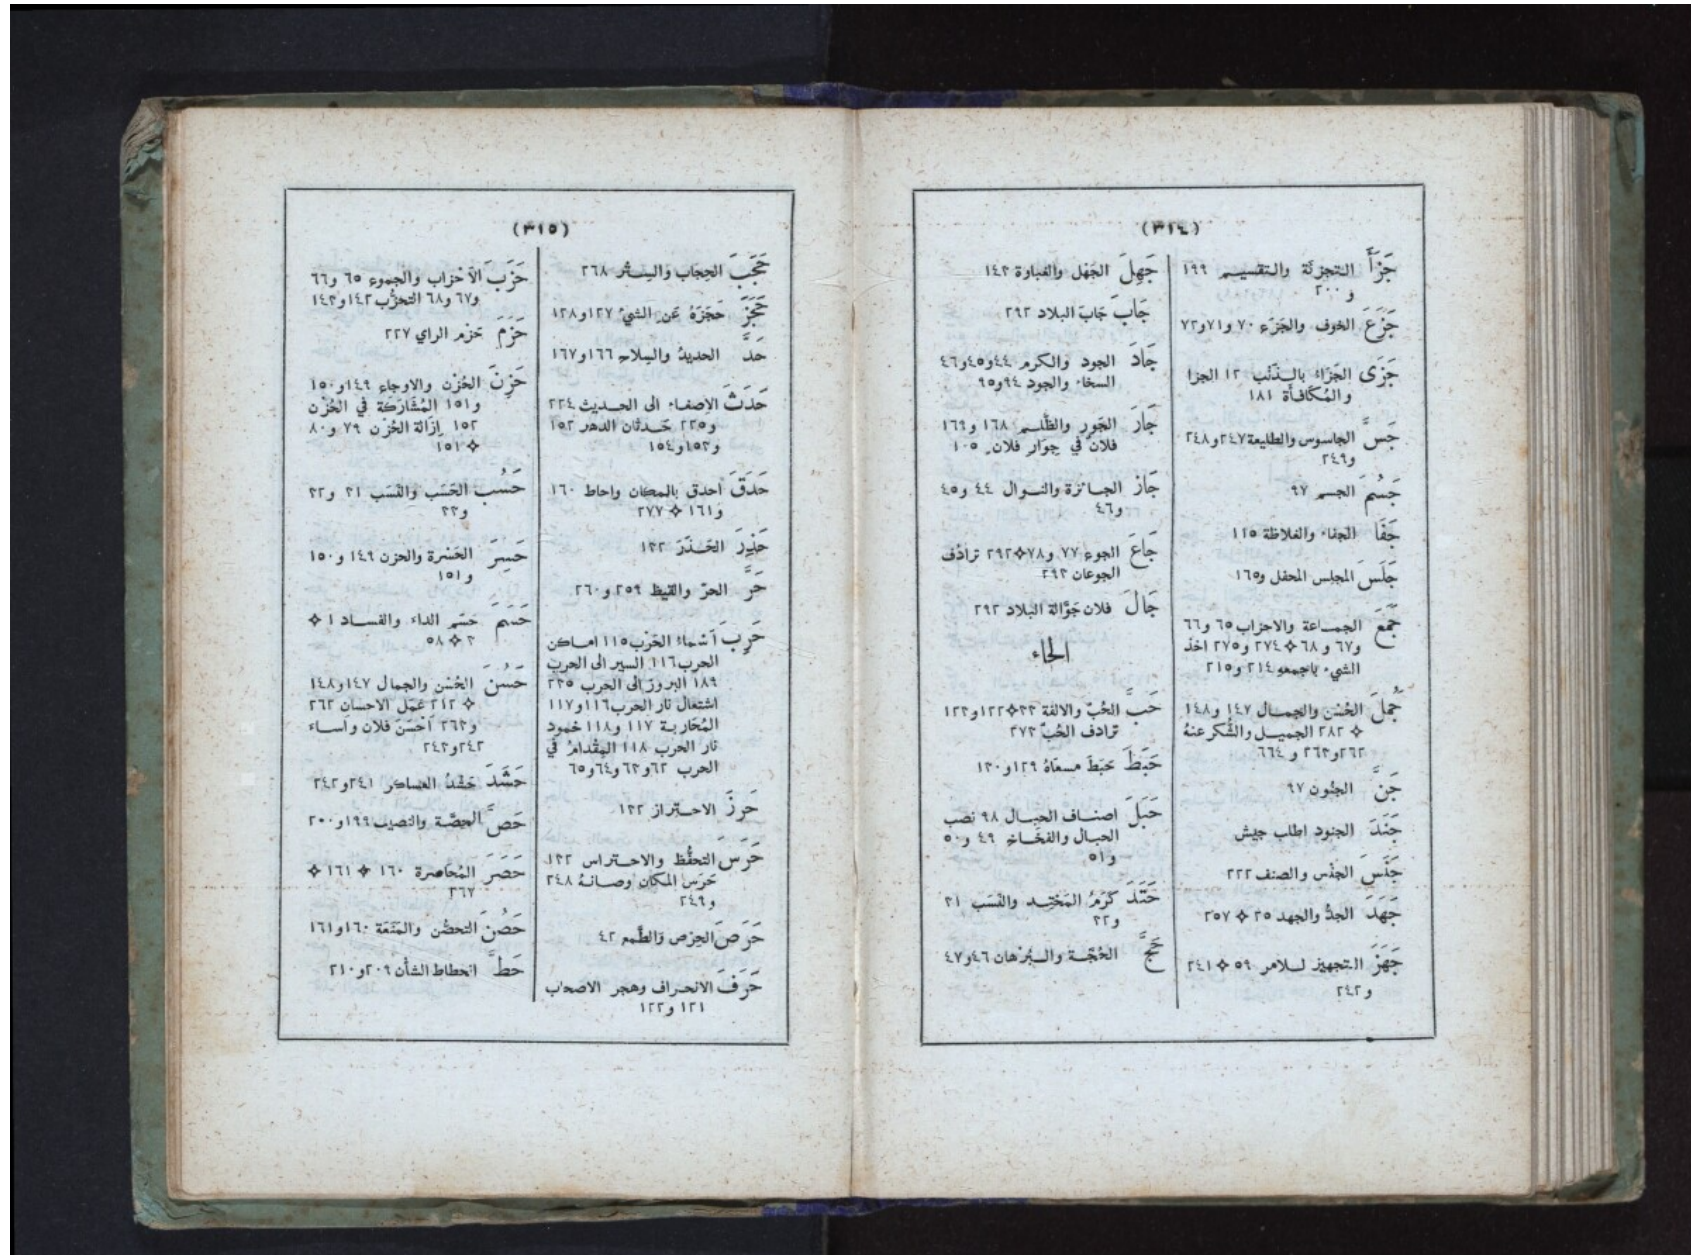 (٣١٤)
جَزَأَ التجزئة والتقسيم ١٩٩
و٢٠٠
جَزَعَ الخوف والجَزَع ٧٠ و٧١و٧٢
جَزَى الجَزَاء بالـذَنْب ١٢ الجزا
والمُكافأة ١٨١
جَسَّ الجاسوس والطليعة ٢٤٧و٢٤٨
و٢٤٩
جَسُمَ الجسم ٩٧
جَفَا الجفاء والغلاظة ١١٥
جَلَسَ المجلس المحفل و١٦٥
جَمَعَ الجمـاعة والاحزاب ٦٥ و٦٦
و٦٧ و٦٨ ✧ ٢٧٤ و٢٧٥ اخذ
الشيء باجمعهِ ٢١٤ و٢١٥
جَمُلَ الحُسْن والجمـال ١٤٧ و١٤٨
✧ ٢٨٢ الجميـل والشُّكر عنهُ
٢٦٢و٢٦٣ و ٦٦٤
جَنَّ الجنُون ٩٧
جَنَدَ الجنود اطلب جيش
جَنَسَ الجنْس والصنف ٢٢٢
جَهَدَ الجدُّ والجهد ٢٥ ✧ ٢٥٧
جَهَزَ التجهيز لـلامر ٥٩ ✧ ٢٤١
و٢٤٢
جَهِلَ الجَهْل والغباوة ١٤٣
جَابَ جَابَ البلاد ٢٩٢
جَادَ الجود والكرم ٤٤و٤٥و٤٦
السخاء والجود ٩٤و٩٥
جَارَ الجَور والظُّلـم ١٦٨ و١٦٩
فلانٌ في جِوَار فلانٍ ١٠٥
جَازَ الجـائزة والنـوال ٤٤ و٤٥
و٤٦
جَاعَ الجوع ٧٧ و٧٨✧٢٩٢ ترادُف
الجوعان ٢٩٣
جَالَ فلان جَوَّالة البلاد ٢٩٢
الحاء
حَبَّ الحُبّ والالفة ٣٣✧١٢٢و١٢٣
ترادف الحُبّ ٢٧٣
حَبَطَ حَبَطَ مسعاهُ ١٢٩و١٣٠
حَبَلَ اصنـاف الحبـال ٩٨ نصْب
الحبال والفخَاخ ٤٩ و٥٠
و٥١
حَتَدَ كَرَمُ المَحْتِـد والنَسَب ٢١
و٢٢
حَجَّ الحُجَّـة والـبُرْهان ٤٦و٤٧
(٣١٥)
حَجَبَ الحِجَاب والسِتْر ٢٦٨
حَجَزَ حَجَزَهُ عَن الشيء ١٢٧و١٢٨
حَدَّ الحديدُ والسِلاح ١٦٦و١٦٧
حَدَثَ الاصغـاء الى الحـديث ٢٢٤
و٢٢٥ حَـدثان الدهر ١٥٢
و١٥٣و١٥٤
حَدَقَ احدق بالمكان واحاط ١٦٠
و١٦١ ✧ ٢٧٧
حَذِرَ الحَـذَرَ ١٣٢
حَرَّ الحرّ والقيظ ٢٥٩ و٢٦٠
حَرِبَ اَسْماءُ الحَرْب ١١٥ امـاكن
الحرب ١١٦ السير الى الحرب
١٨٩ البروز الى الحرب ٢٣٥
اشتعال نار الحرب ١١٦و١١٧
المُحَاربـة ١١٧ و١١٨ خمود
نار الحرب ١١٨ المِقْدامُ في
الحرب ٦٢و٦٣ و٦٤و٦٥
حَرَزَ الاحـتراز ١٣٢
حَرَسَ التحفُّظ والاحـتراس ١٣٢
حَرَس المكان وصـانـهُ ٢٤٨
و٢٤٩
حَرَصَ الحِرْص والطَّمع ٤٢
حَرَفَ الانحراف وهجر الاصحاب
١٢١ و١٢٢
حَزَبَ الاَحْزاب والجموع ٦٥ و٦٦
و٦٧ و٦٨ التحزُّب ١٤٢و١٤٣
حَزَمَ حَزم الراي ٢٢٧
حَزِنَ الحُزْن والاوجاع ١٤٩و١٥٠
و١٥١ المُشَارَكَة في الحُزْن
١٥٢ اِزَالة الحُزْن ٧٩ و٨٠
✧١٥١
حَسُب الحَسَب والنَسَب ٢١ و٢٢
و٢٣
حَسِرَ الحَسْرة والحزن ١٤٩ و١٥٠
و١٥١
حَسَمَ حَسْم الداء والفساد ١ ✧
٢ ✧ ٥٨
حَسُنَ الحُسْن والجمال ١٤٧و١٤٨
✧ ٢١٢ عَمَل الاحسان ٢٦٢
و٢٦٣ اَحْسَنَ فلان واَساء
٢٤٢و٢٤٣
حَشَدَ حَشْدُ العساكر ٢٤١و٢٤٢
حَصَّ الحِصَّة والنصيب ١٩٩و٢٠٠
حَصَرَ المُحَاصرة ١٦٠ ✧ ١٦١ ✧
٢٦٧
حَصُنَ التحصُّن والمَنَعَة ١٦٠و١٦١
حَطَّ انحطاط الشأن ٢٠٩و٢١٠